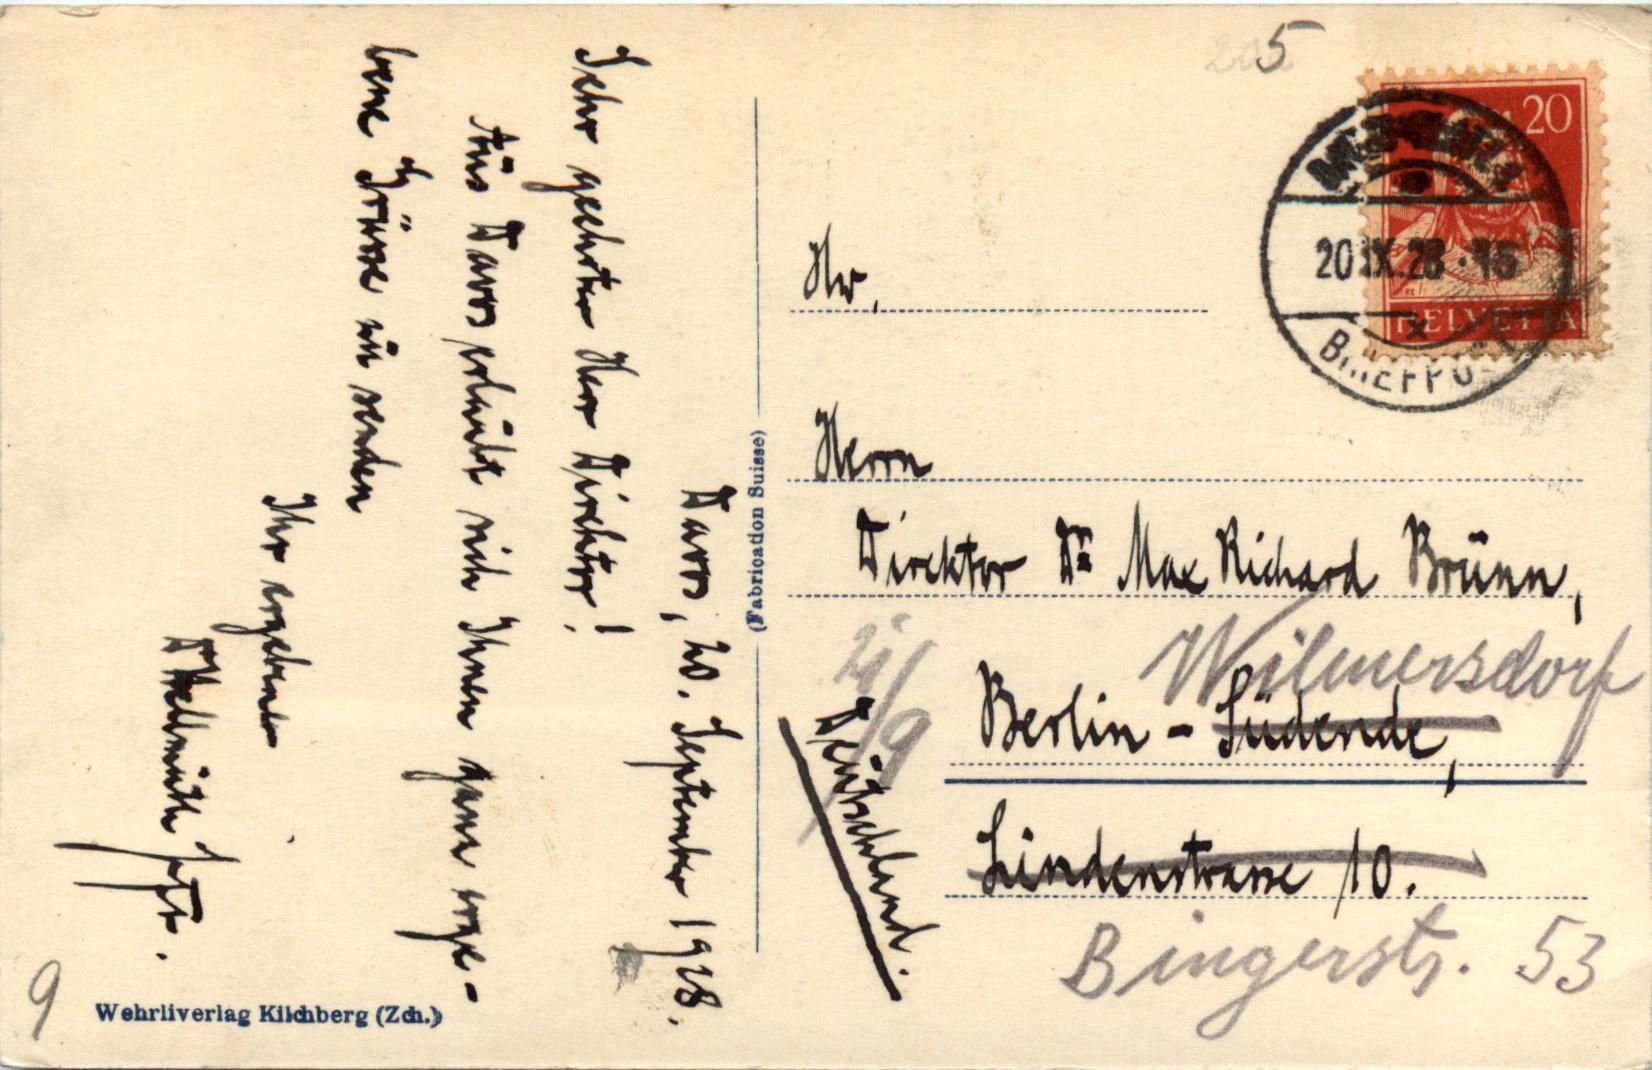 Davos, 20. September 1928.
Sehr geehrter Herr Direktor!
Aus Davos erlaubt sich Ihnen ganz erge-
bene Grüsse zu senden
Ihr ergebener
Hellmuth
Wehrliverlag Kilchberg (Zch.)
9
(Fabrication Suisse)
5
20
HELVETIA
20.IX.28.16
BRIEFPOST
Hr.
Herrn
Direktor Dr Max Richard Brünn,
Wilmersdorf
Berlin - Südende,
Lindenstrasse 10.
Bingerstr. 53
Deutschland.
21/9